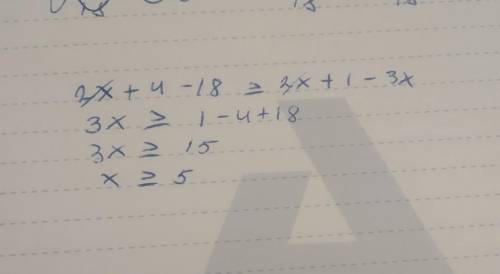 2x + 4 - 18 ≥ 2x + 1 - 3x
3x ≥ 1 - 4 + 18
3x ≥ 15
x ≥ 5